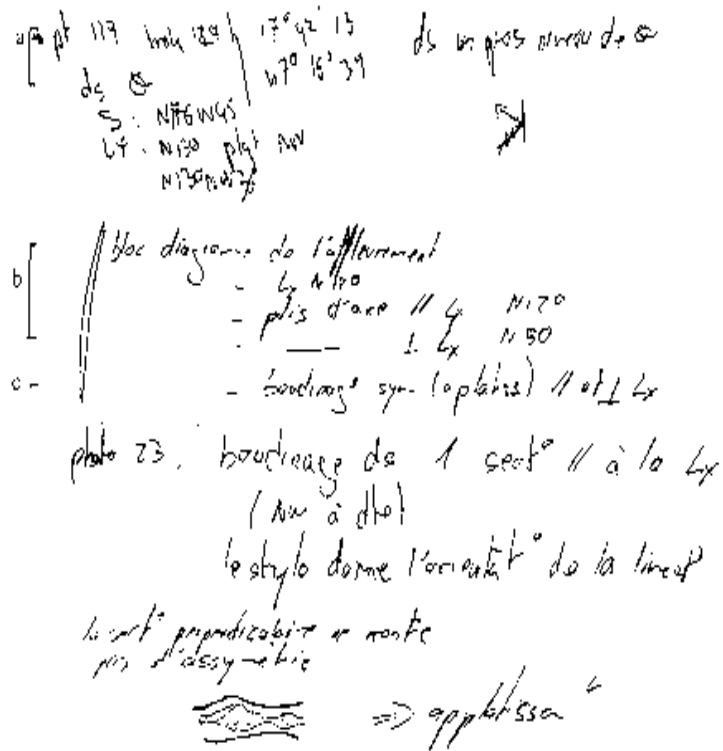 pt 117 17° 42' 13 ds un gros niveau de
ds 47° 16' 39
S : N76NW45
Lx : N130 NW
b bloc diagramme de l'affleurement
- Lx N120
- plis d'axe // Lx N120
- —— ⊥ Lx N50
c - - boudinage sym (aplatiss) // et ⊥ Lx
photo 23. boudinage ds 1 sect° // à la Lx
(NW à dte)
le stylo donne l'orientat° de la lineat°
la sect° perpendiculaire ne montre
pas d'assymétrie
=> applatissa